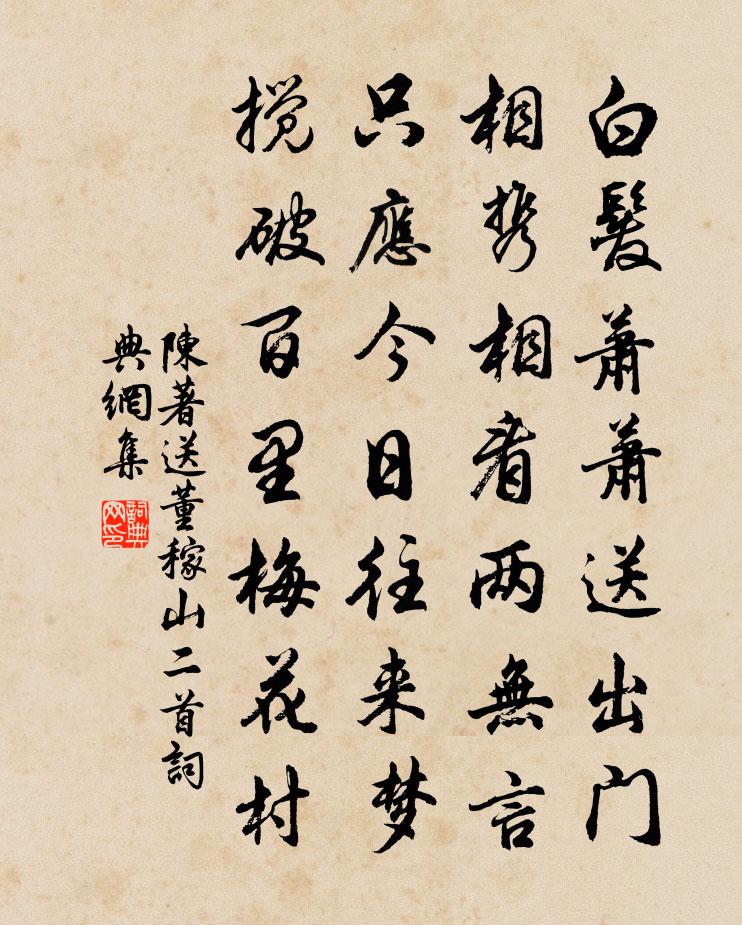 白髮蕭蕭送出门
相携相看两無言
只應今日往来梦
搅破百里梅花村
陳著送董稼山二首詞
典網集
詞典网印